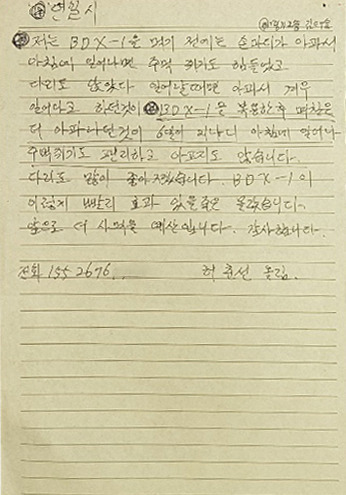 연일시
저는 BDX-1을 먹기 전에는 손마디가 아파서
아침에 일어나면 주먹 쥐기도 힘들었고
다리도 않았다 일어날때면 아파서 겨우
일어나고 하던것이 BDX-1을 복용한후 며칠은
더 아파나던것이 6일이 지나니 아침에 일어나
주먹쥐기도 편리하고 아프지도 않습니다.
다리도 많이 좋아 졌습니다. BDX-1이
이렇게 빨리 효과 있을줄은 몰랐습니다.
앞으로 더 사먹을 예산입니다. 감사합니다.
전화 155 2676... 허춘선 올림.